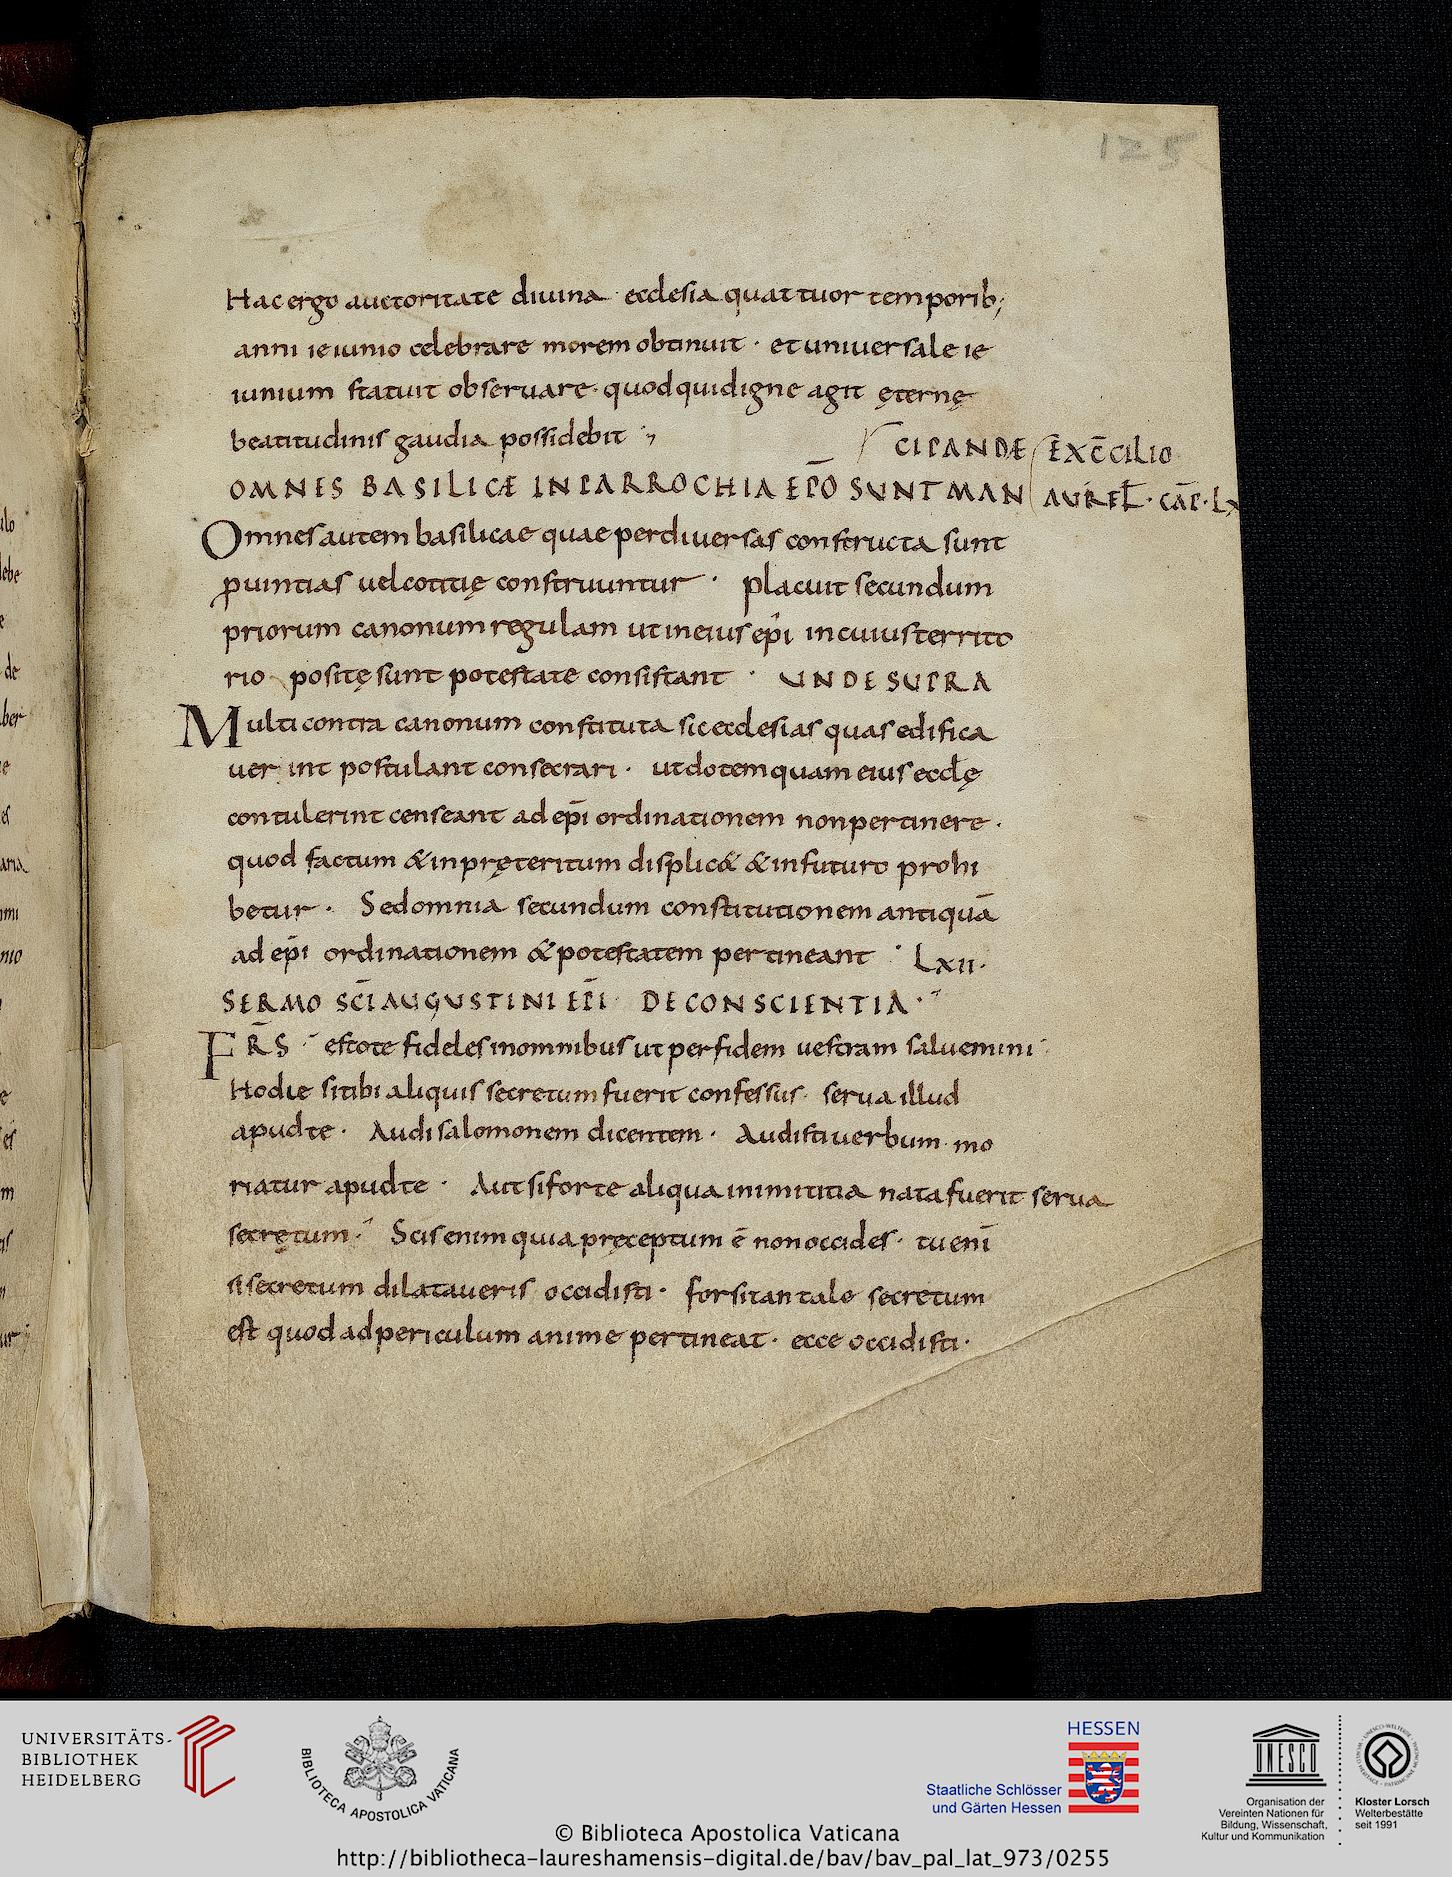 125
Hac ergo auctoritate diuina ecclesia quattuor temporib;
anni ieiunio celebrare morem obtinuit · et uniuersale ie
iunium statuit obseruare · quod qui digne agit ęternę
beatitudinis gaudia possidebit ·,
CIPANDÆ EXC̄CILIO
OMNES BASILICÆ IN PARROCHIA EP̄O SUNT MAN AUREL̄ · CAP̄ · LX
Omnes autem basilicae quae per diuersas constructa sunt
ꝓuintias uel cottitię construuntur · placuit secundum
priorum canonum regulam ut in eius ep̄i in cuius territo
rio positę sunt potestate consistant · UNDE SUPRA
Multi contra canonum constituta sic ecclesias quas edifica
uerint postulant consecrari · ut dotem quam eius eccłę
contulerint censeant ad ep̄i ordinationem non pertinere ·
quod factum & in pręteritum displic& & in futuro prohi
betur · Sed omnia secundum constitutionem antiquā
ad ep̄i ordinationem & potestatem pertineant · LXII ·
SERMO SC̄I AUGUSTINI EP̄I DE CONSCIENTIA ·
FR̄S estote fideles in omnibus ut per fidem uestram saluemini
Hodie si tibi aliquis secretum fuerit confessus · serua illud
apud te · Audi salomonem dicentem · Audisti uerbum · mo
riatur apud te · Aut si forte aliqua inimititia nata fuerit serua
secrętum · Scis enim quia pręceptum ē non occides · tu enī
si secretum dilataueris occidisti · forsitan tale secretum
est quod ad periculum anime pertineat · ecce occidisti ·
UNIVERSITÄTS-
BIBLIOTHEK
HEIDELBERG
BIBLIOTECA APOSTOLICA VATICANA
HESSEN
Staatliche Schlösser
und Gärten Hessen
UNESCO
Organisation der
Vereinten Nationen für
Bildung, Wissenschaft,
Kultur und Kommunikation
Kloster Lorsch
Welterbestätte
seit 1991
© Biblioteca Apostolica Vaticana
http://bibliotheca-laureshamensis-digital.de/bav/bav_pal_lat_973/0255